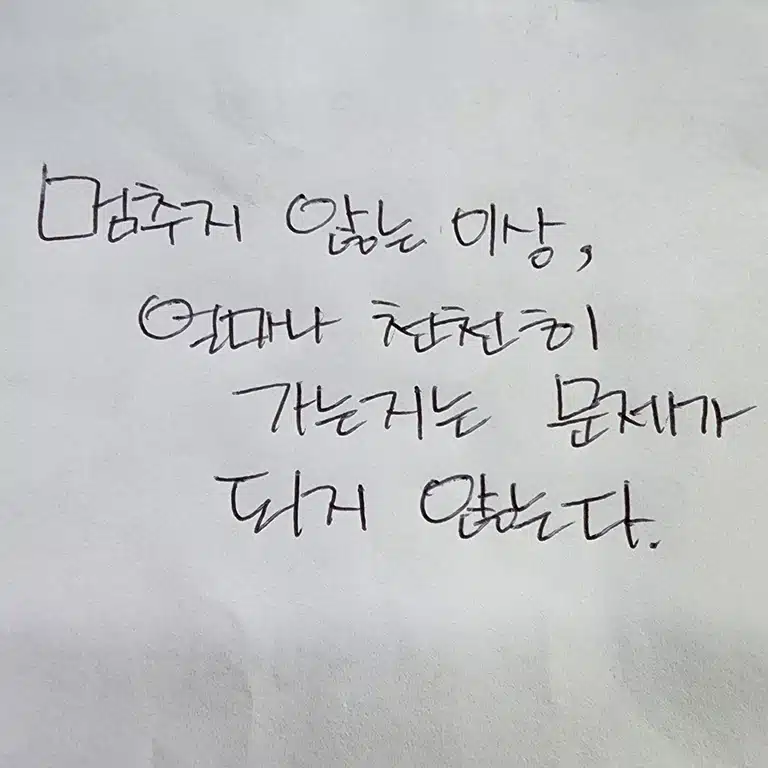 멈추지 않는 이상,
얼마나 천천히
가는지는 문제가
되지 않는다.